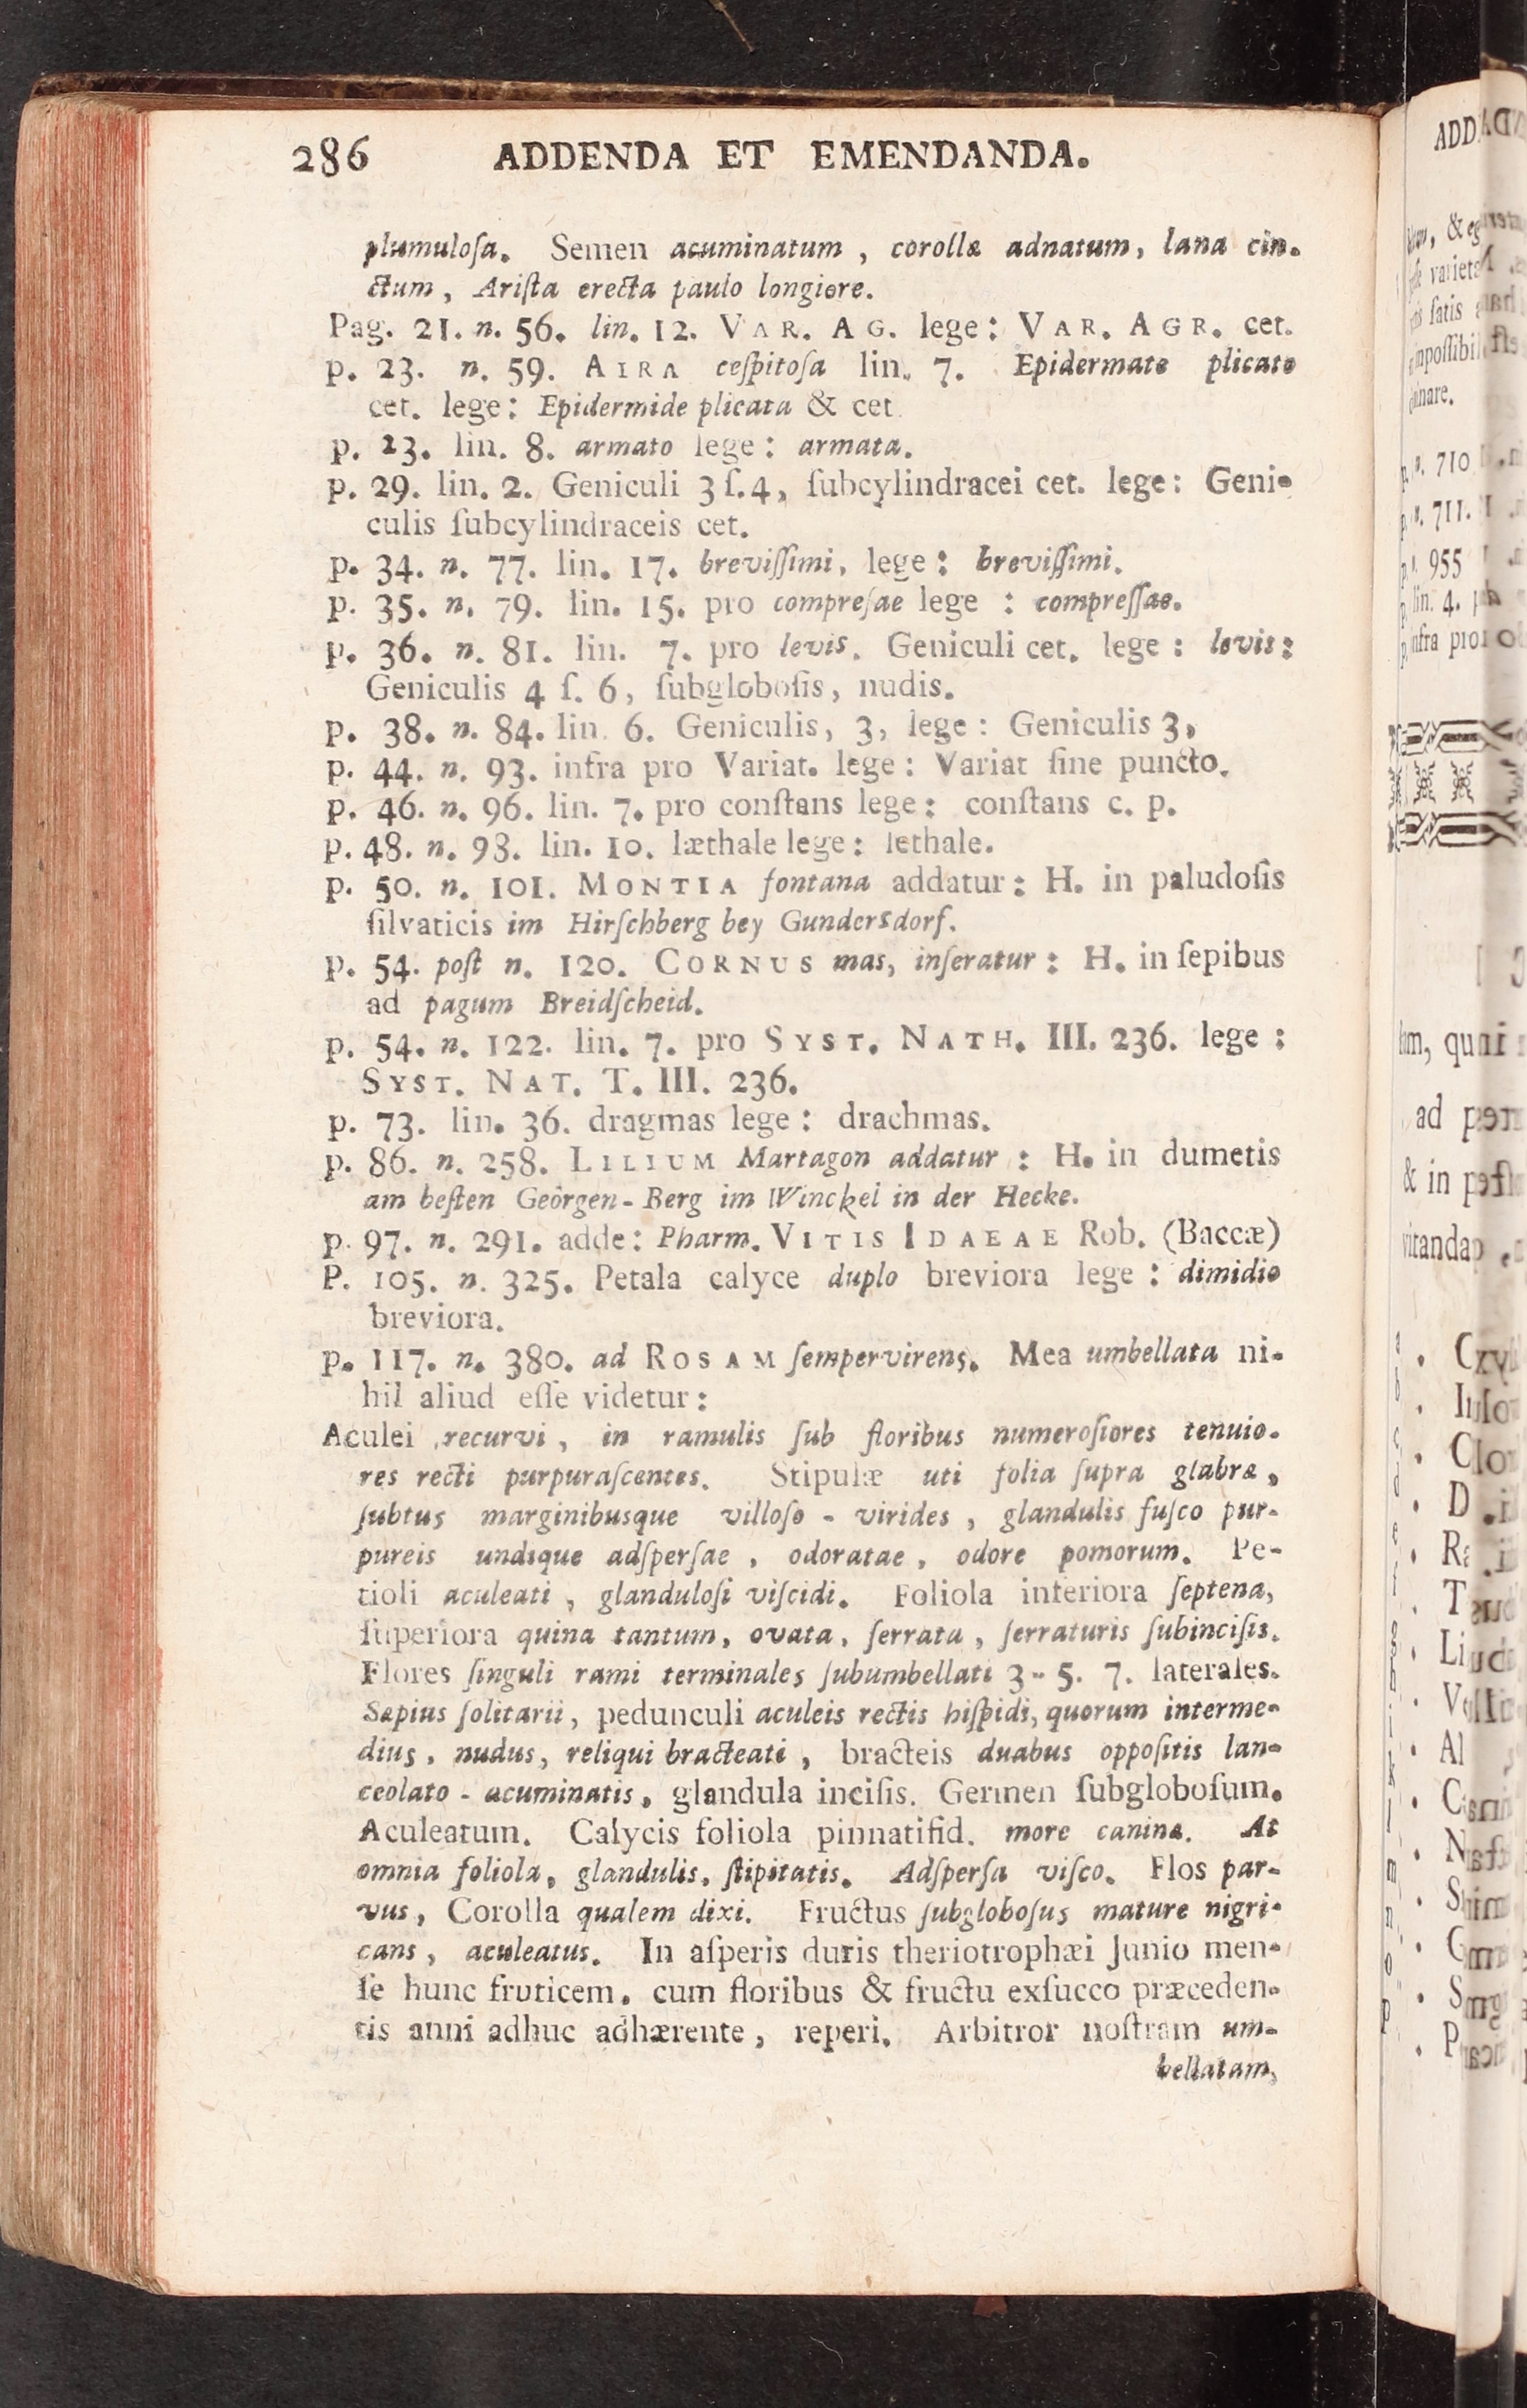 286 ADDENDA ET EMENDANDA.
plumuloſa. Semen acuminatum, corollæ adnatum, lana cin-
ctum, Ariſta erecta paulo longiore.
Pag. 21. n. 56. lin. 12. VAR. AG. lege: VAR. AGR. cet.
p. 23. n. 59. AIRA ceſpitoſa lin. 7. Epidermate plicato
cet. lege: Epidermide plicata & cet.
p. 23. lin. 8. armato lege: armata.
p. 29. lin. 2. Geniculi 3 ſ. 4, ſubcylindracei cet. lege: Geni-
culis ſubcylindraceis cet.
p. 34. n. 77. lin. 17. breviſſimi, lege: breviſſimi.
p. 35. n. 79. lin. 15. pro compreſae lege: compreſſae.
p. 36. n. 81. lin. 7. pro levis. Geniculi cet. lege: levis:
Geniculis 4 ſ. 6, ſubgloboſis, nudis.
p. 38. n. 84. lin. 6. Geniculis, 3, lege: Geniculis 3,
p. 44. n. 93. infra pro Variat. lege: Variat ſine puncto.
p. 46. n. 96. lin. 7. pro conſtans lege: conſtans c. p.
p. 48. n. 98. lin. 10. læthale lege: lethale.
p. 50. n. 101. MONTIA fontana addatur: H. in paludoſis
ſilvaticis im Hirſchberg bey Gundersdorf.
p. 54. poſt n. 120. CORNUS mas, inſeratur: H. in ſepibus
ad pagum Breidſcheid.
p. 54. n. 122. lin. 7. pro SYST. NATH. III. 236. lege:
SYST. NAT. T. III. 236.
p. 73. lin. 36. dragmas lege: drachmas.
p. 86. n. 258. LILIUM Martagon addatur: H. in dumetis
am beſten Geörgen-Berg im Winckel in der Hecke.
p. 97. n. 291. adde: Pharm. VITIS IDAEAE Rob. (Baccæ)
P. 105. n. 325. Petala calyce duplo breviora lege: dimidio
breviora.
p. 117. n. 380. ad ROSAM ſempervirens. Mea umbellata ni-
hil aliud eſſe videtur:
Aculei recurvi, in ramulis ſub floribus numeroſiores tenuio-
res recti purpuraſcentes. Stipulæ uti folia ſupra glabræ,
ſubtus marginibusque villoſo - virides, glandulis fuſco pur-
pureis undique adſperſae, odoratae, odore pomorum. Pe-
tioli aculeati, glanduloſi viſcidi. Foliola inferiora ſeptena,
ſuperiora quina tantum, ovata, ſerrata, ſerraturis ſubinciſis.
Flores ſinguli rami terminales ſubumbellati 3-5. 7. laterales.
Sæpius ſolitarii, pedunculi aculeis rectis hiſpidi, quorum interme-
dius, nudus, reliqui bracteati, bracteis duabus oppoſitis lan-
ceolato - acuminatis, glandula inciſis. Germen ſubgloboſum.
Aculeatum. Calycis foliola pinnatifid. more caninæ. At
omnia foliola, glandulis, ſtipitatis. Adſperſa viſco. Flos par-
vus, Corolla qualem dixi. Fructus ſubgloboſus mature nigri-
cans, aculeatus. In aſperis duris theriotrophæi Junio men-
ſe hunc fruticem, cum floribus & fructu exſucco præceden-
tis anni adhuc adhærente, reperi. Arbitror noſtram um-
bellatam,